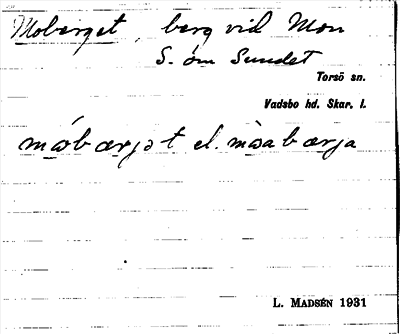 Moberget, berg vid Mon
S. om Sundet
Torsö sn.
Vadsbo hd. Skar. l.
móbærjət el. mòabærja
L. MADSÉN 1931